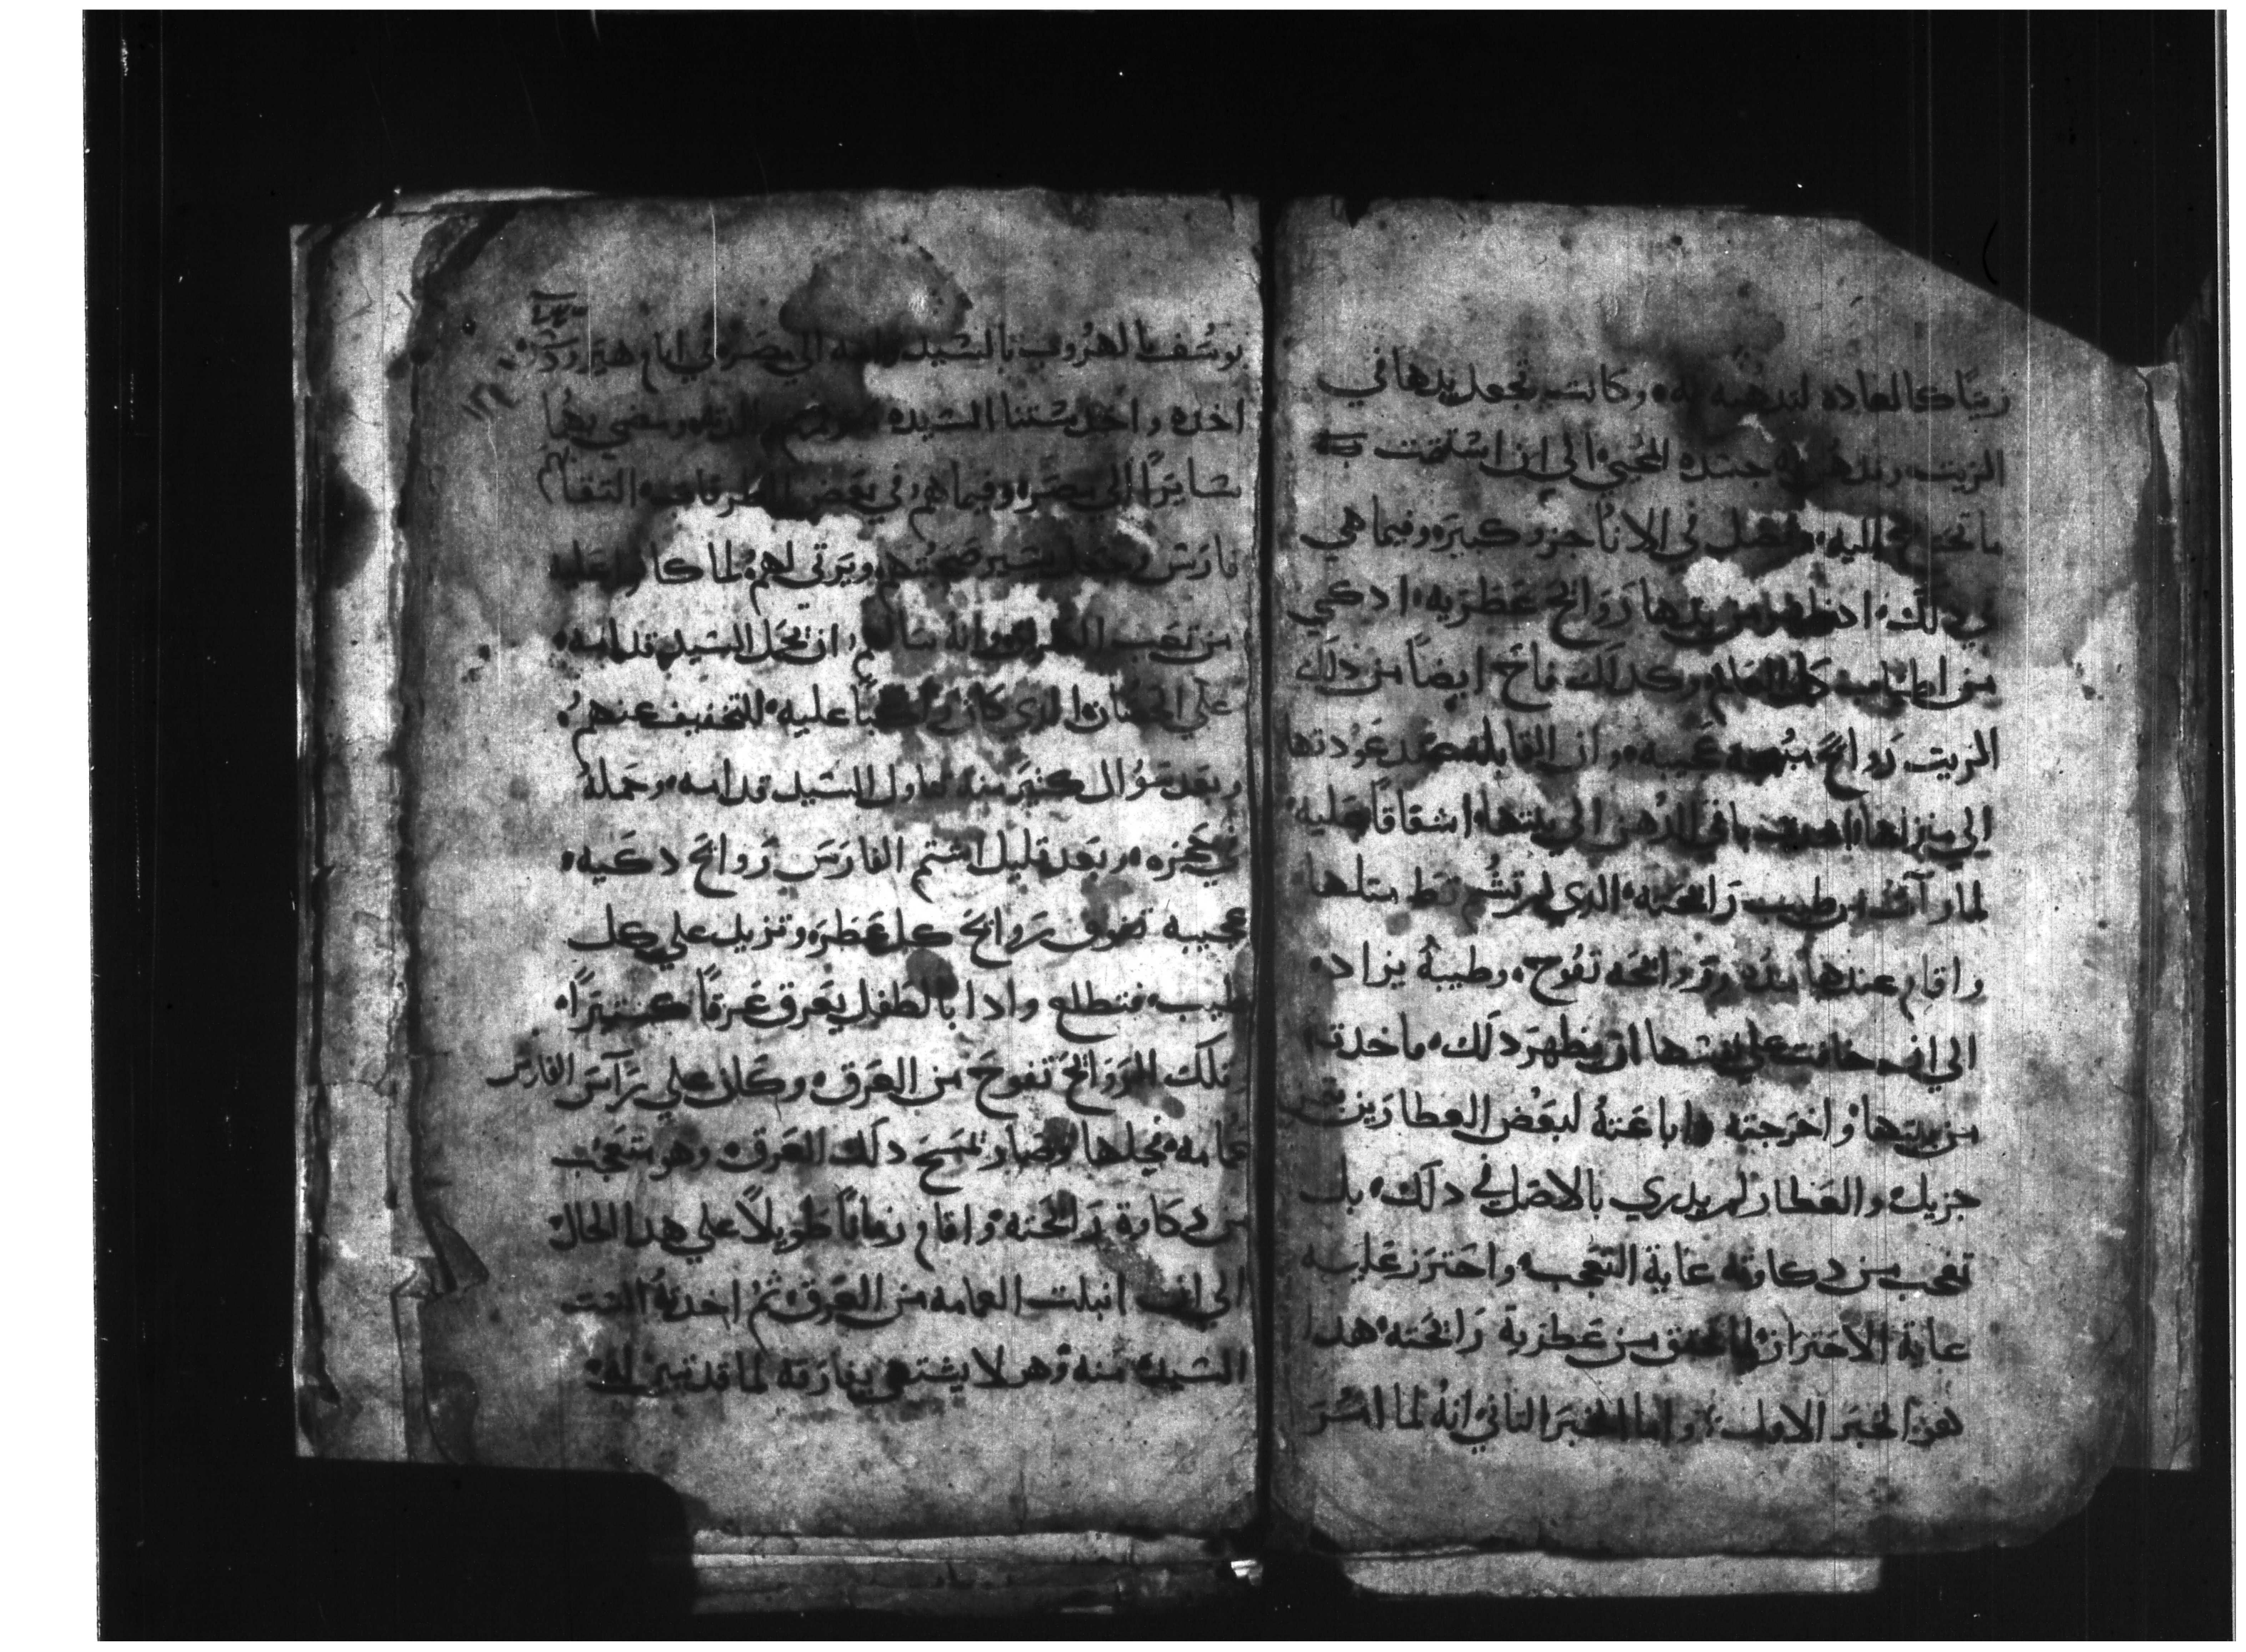 زيتًا كالعاده لتدهنه به وكانت تجعل يدها في
الزيت وتدهن به جسده المحيي الي ان اشتلمت
ما تحتاج اليه وفضل في الانا جزو كبيره وفيما هي
في دلك ادظهر من يدها روايح عطريه ادكي
من اطياب كل العالم وكدلك فاح ايضاً من دلك
الزيت روايح عجيبه وان القابله عند عودتها
الي منزلها اهدت باقي الدهن الي بنتها اشفاقاً عليه
لما رآت من طيب رايحته الدي لم تشم قط متلها
واقام عندها مده وروايحه تفوح وطيبه يزاده
الي ان خافت علي نفسها ان يظهر دلك ماخدته
من بيتها واخرجته واباعته لبعض العطارين بتمن
جزيل والعطار لم يدري بالاصل في دلك بل
تعجب من دكاوته غاية التعجب واحترز عليه
غاية الاحتراز لما تحقق من عطرية رايحته هدا
هو الخبر الاول واما الخبر التاني انه لما امر
يوسف بالهروب بالسيد وامه الي مصر في ايام هيرودس
اخده واخد ستنا السيده ومضي بهما
سايرًا الي مصر وفيما هم في بعض الطرقات التقاهم
فارس وجعل يسير صحبتهم ويرتي لهم لما كانوا عليه
من تعب الطريق وانه سالهم ان تجعل السيد قدامه
علي الحصان الدي كان راكبًا عليه للتخفيف عنهم
وبعد سوال كتير منه تناول السيد قدامه وحمله
في حجره وبعد قليل اشتم الفارس روايح دكيه
عجيبه تفوق روايح كل عطر وتزيد علي كل
طيب فتطلع وادا بالطفل يعرق عرقاً كتيرًا
وتلك الروايح تفوح من العرق وكان علي رآس الفارس
عمامه فحلها وصار يمسح دلك العرق وهو متعجب
من دكاوة رايحته واقام زماناً طويلاً علي هدا الحال
الي ان انبلت العمامه من العرق ثم اخدته الست
السيده منه وهو لا يشتهي يفارقه لما قد تبين له